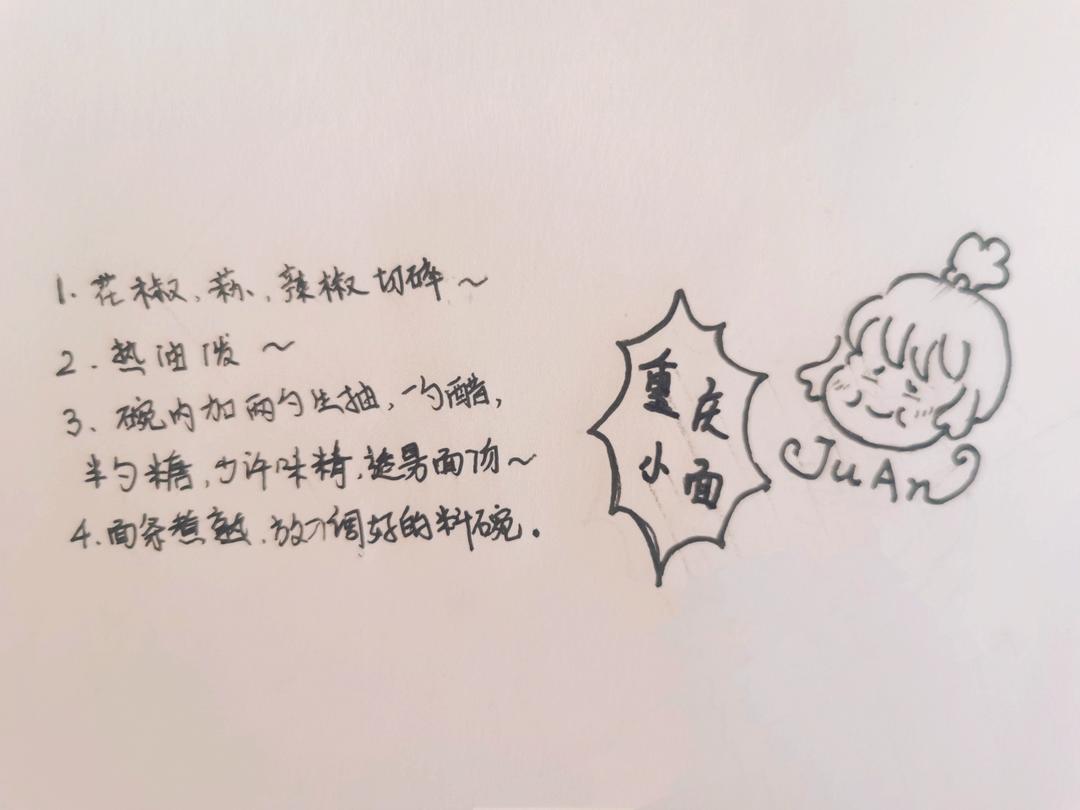 1. 花椒、蒜、辣椒切碎~
2. 热油泼 ~
3、碗内加两勺生抽,一勺醋,
半勺糖,少许味精,
4. 面条煮熟,放入调好的料碗。
重庆
小面
JuAn